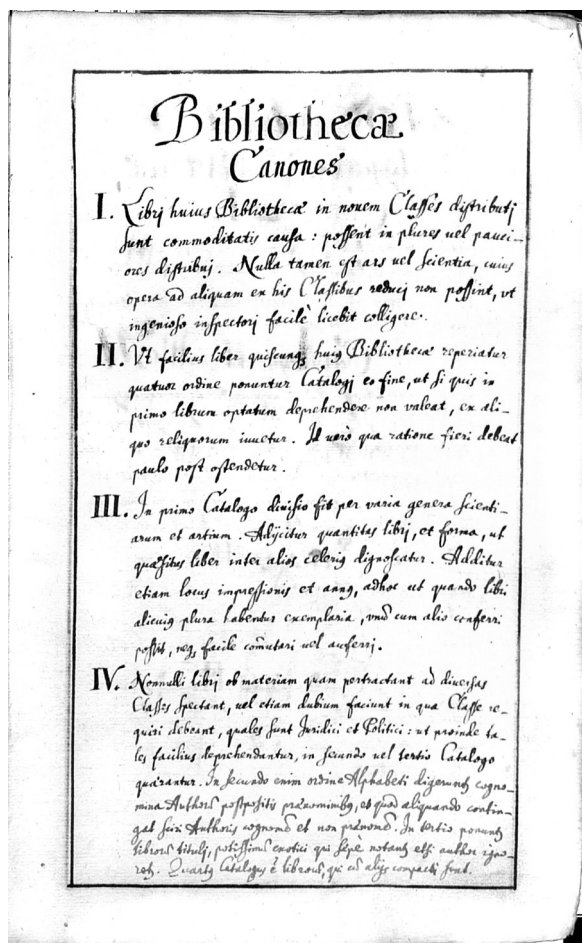 Bibliothecæ
Canones
I. Librj huius Bibliothecæ in nouem Classes distributj
sunt commoditatis causa : possent in plures uel pauci-
ores distribuj. Nulla tamen est ars uel scientia, cuius
opera ad aliquam ex his Classibus reducj non possint, vt
ingenioso inspectorj facile licebit colligere.
II. Vt facilius liber quiscunq; huiq Bibliothecæ reperiatur
quatuor ordine ponuntur Catalogj eo fine, ut si quis in
primo librum optatum deprehendere non valeat, ex ali-
quo reliquorum iuuetur. Id uerò qua ratione fieri debeat
paulo post ostendetur.
III. In primo Catalogo diuisio fit per varia genera scienti-
arum et artium. Adijcitur quantitas librj, et forma, ut
quæsitus liber inter alios celeriq dignoscatur. Additur
etiam locus impressionis et annq, adhoc ut quando libri
alicuiq plura habentur exemplaria, vnũ cum alio conferri
possit, neq; facile com̃utari uel auferrj.
IV. Nonnulli librj ob materiam quam pertractant ad diuersas
Classes spectant, uel etiam dubium faciunt in qua Classe re-
quiri debeant, quales sunt Juridici et Politici : ut proinde ta-
les facilius deprehendantur, in secundo uel tertio Catalogo
quærantur. In secundo enim ordine Alphabeti digerunt cogno-
mina Authorũ postpositis prænominibq, et quod aliquando contin-
gat sciri Authoris cognomẽ et non prænomẽ. In tertio ponunt
librorũ titulj, potissimũ exotici qui sæpe notant etsi author igno-
ret. Quartq Catalogus ẽ librorũ, qui cũ alijs compacti sunt.